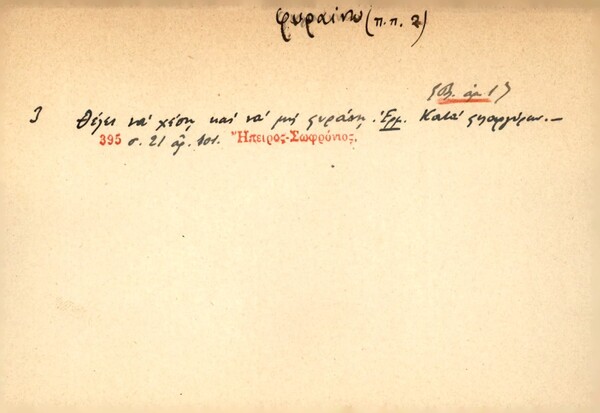 φυραίνω (π.π. 2)
[βλ. ἀρ 1]
3 Θέλει νὰ χέσῃ καὶ νὰ μὴ φυράσῃ. Ἑρμ. Κατὰ φιλαργύρων.—
395 σ. 21 ἀρ. 101. Ἤπειρος-Σωφρόνιος.